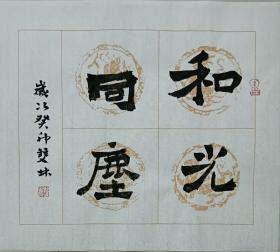 和光
同塵
歲次癸卯雙林